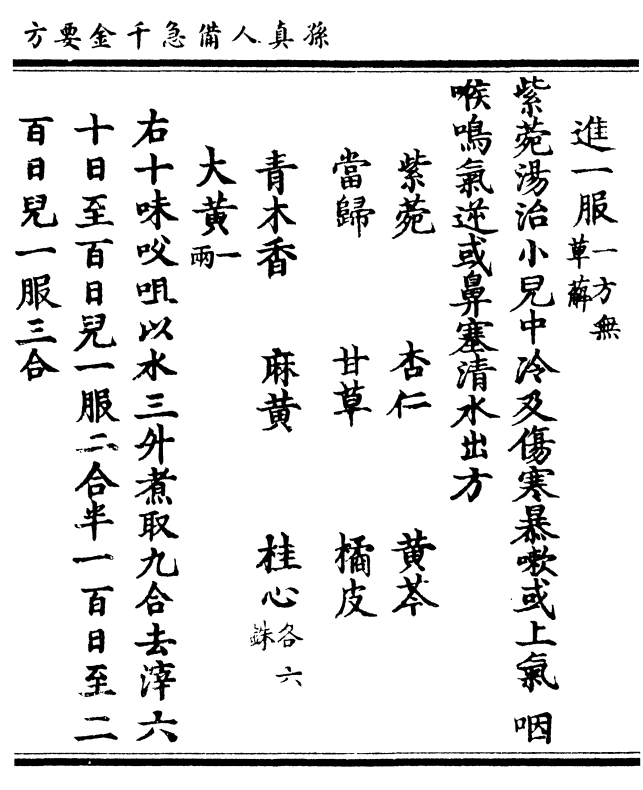 孫真人備急千金要方
進一服一方無草薢
紫菀湯治小兒中冷及傷寒暴嗽或上氣咽
喉鳴氣逆或鼻塞清水出方
紫菀 杏仁 黄芩
當歸 甘草 橘皮
青木香 麻黄 桂心各六銖
大黄一兩
右十味㕮咀以水三升煮取九合去滓六
十日至百日兒一服二合半一百日至二
百日兒一服三合